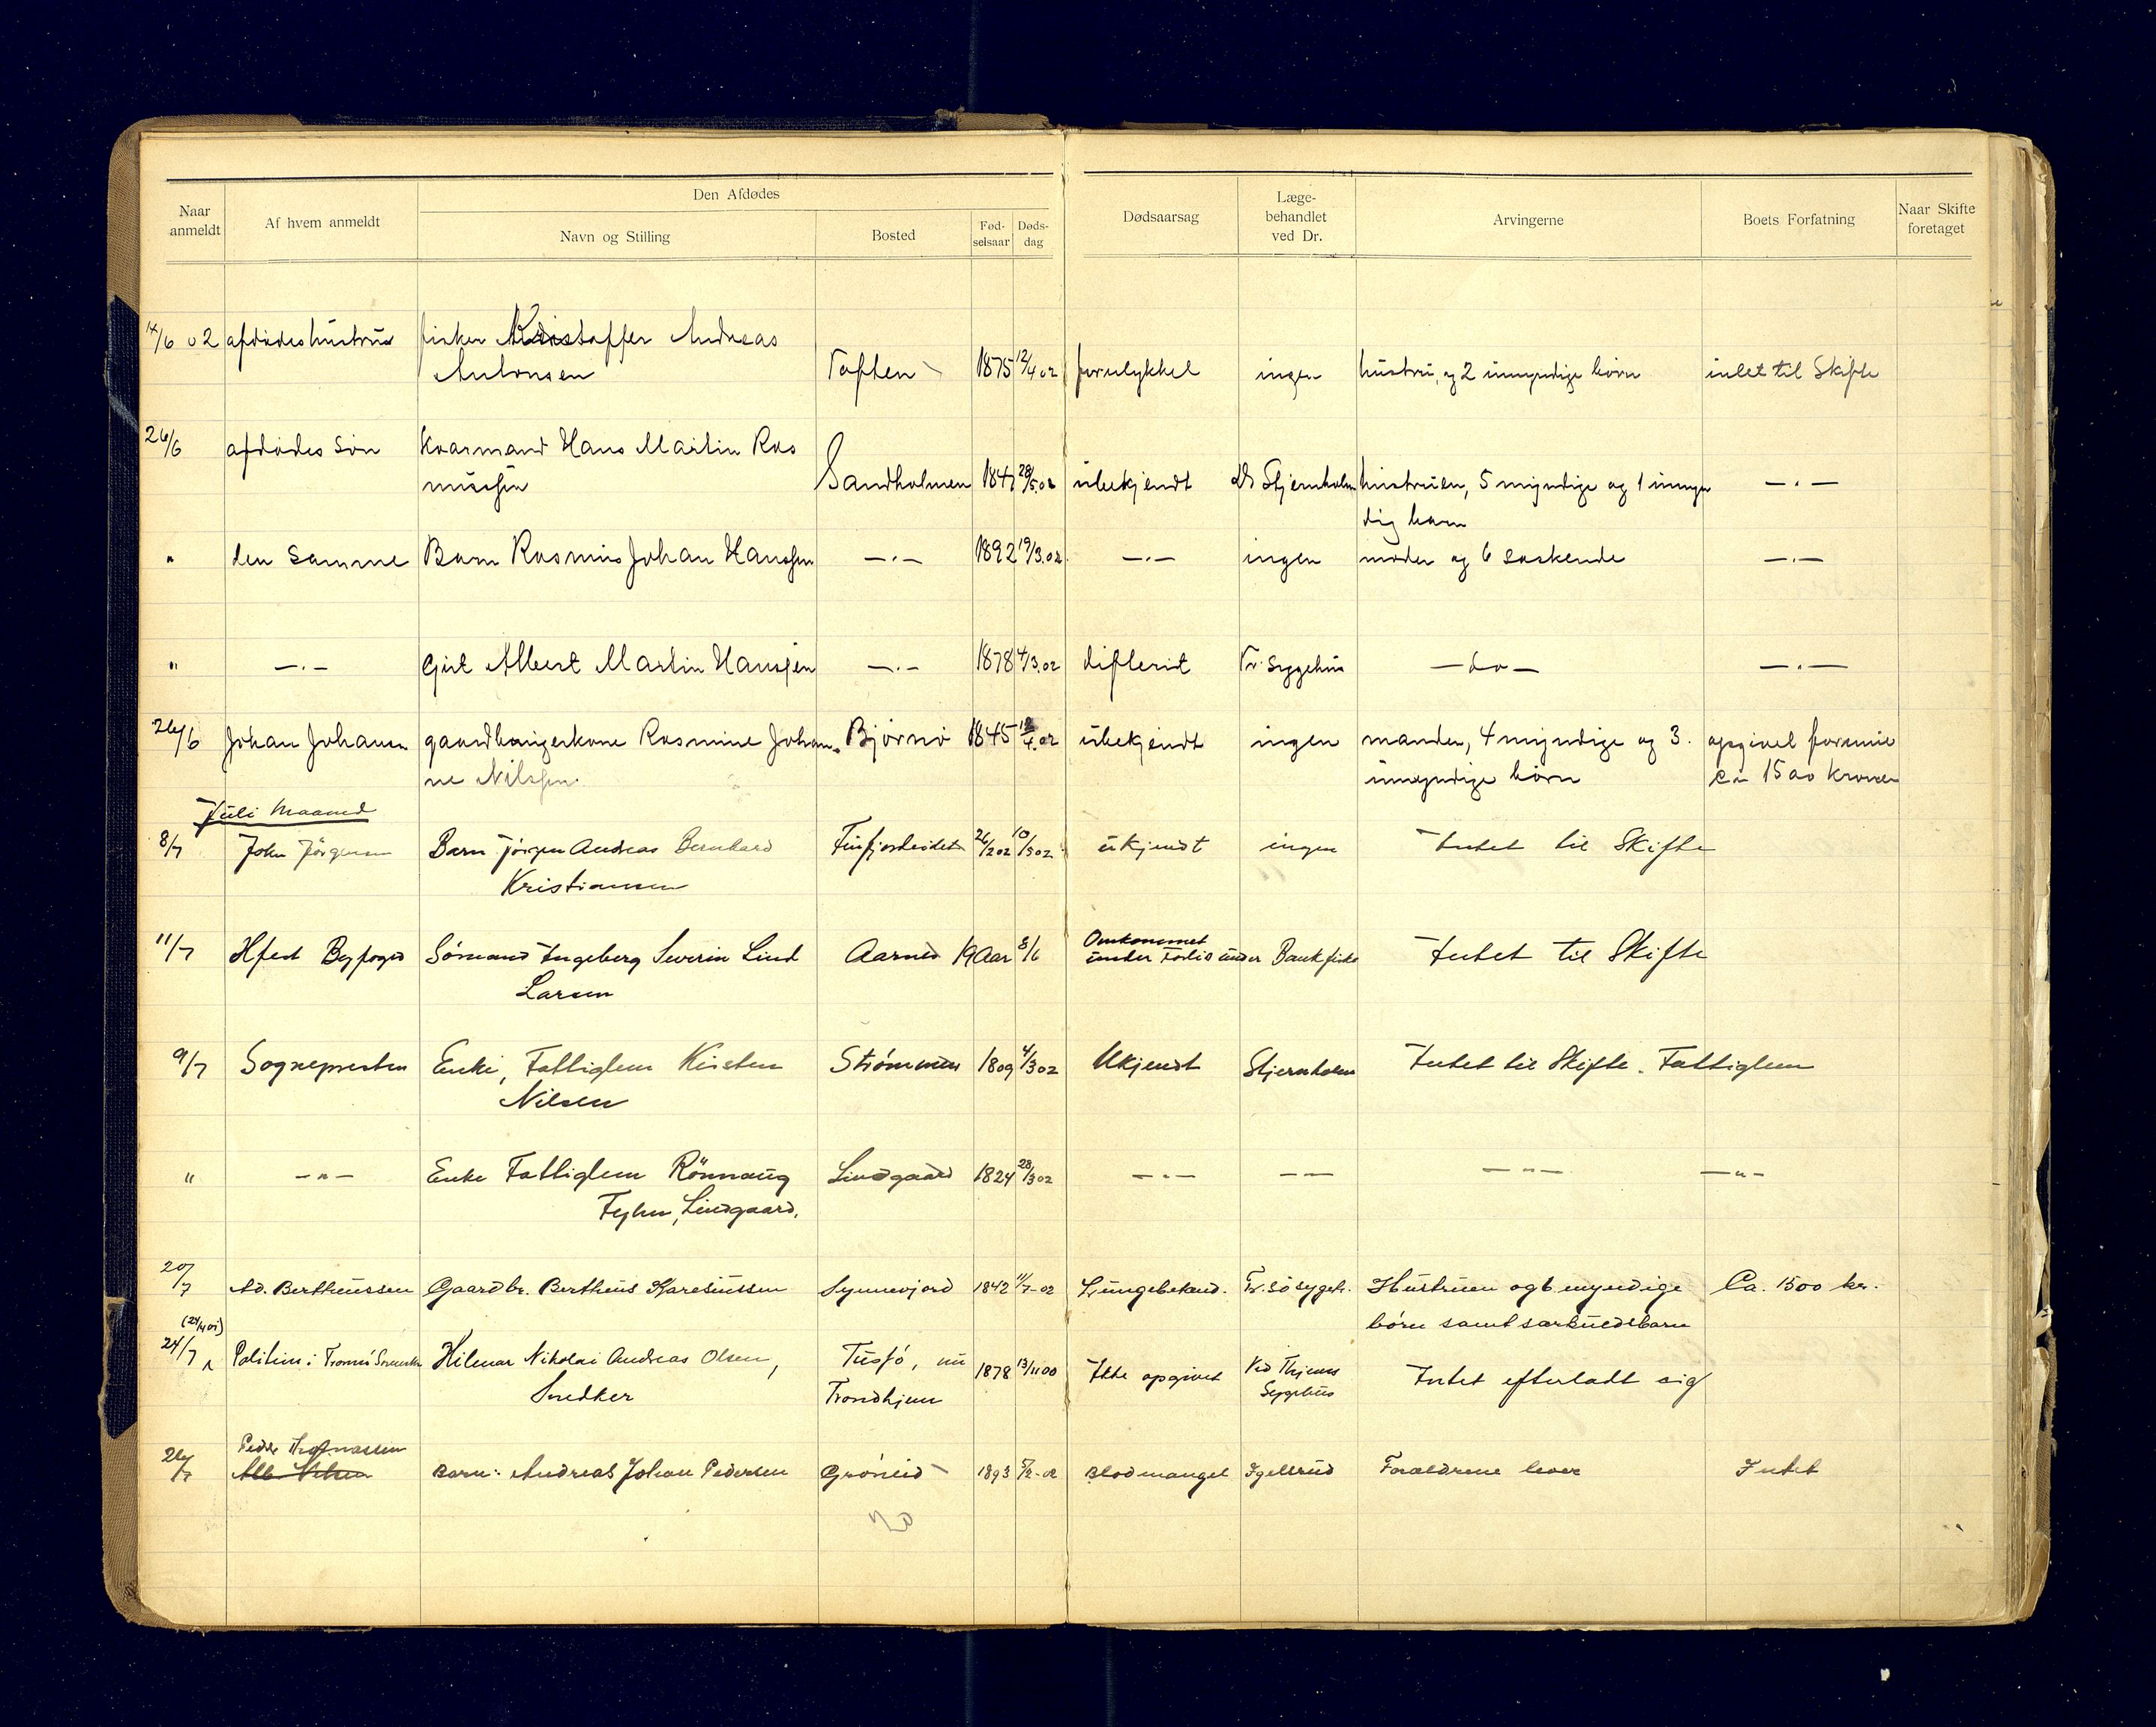 Den Afdødes
Naar anmeldt
Af hvem anmeldt
Navn og Stilling
Bosted
Fød-selsaar
Døds-dag
Dødsaarsag
Læge-behandlet ved Dr.
Arvingerne
Boets Forfatning
Naar Skifte foretaget
14/6 02 afdødes hustru fisker Kristoffer Andreas
Antonsen Toften 1875 12/4 02 forulykket ingen hustru, og 2 umyndige børn intet til Skifte
26/6 afdødes søn Kvarmand Hans Martin Ras
mussen Sandholmen 1847 28/5.02 ubekjendt Dr Stjernholm hustruen, 5 myndige og 1 umyn
dig barn — " —
" den samme Barn Rasmus Johan Hanssen — " — 1892 19/3.02 — " — ingen moder og 6 søskende — " —
" — " — Gut Albert Martin Hanssen — " — 1878 4/3.02 difterit Tr. Sygehus — do — — " —
26/6 Johan Johansen gaardbrugerkone Rasmine Johan-
ne Nilssen Bjørnø 1845 /4.02 ubekjendt ingen manden, 4 myndige og 3
umyndige børn opgivet formue
ca 1500 kroner
Juli Maaned
8/7 John Jörgensen Barn Jörgen Andreas Bernhard
Kristiansen Finfjordeidet 26/2 02 10/5 02 ukjendt ingen Intet til Skifte
11/7 Hfest Byfoged Sømand Ingeberg Severin Lind
Larsen Aarnes 19 Aar 8/6 Omkommet
under Forlis under Bankfiske Intet til Skifte
9/7 Sognepresten Enke, Fattiglem Kirsten
Nilsen Strømmen 1809 4/3 02 Ukjendt Stjernholm Intet til Skifte. Fattiglem
" — " — Enke Fattiglem Rönnaug
Fyhn, Lindgaard. Lindgaard 1824 28/3 02 — " — — — — " — — " —
20/7 Ad. Bertheussen Gaardbr. Bertheus Karesiussen 1842 11/7-02 Lungebetænd. Tr.sø sygeh. Hustruen og 6 myndige
børn samt særkuldsbarn Ca. 1500 kr.
24/7 Politiet i Tromsø Hilmar Nikolai Andreas Olsen,
Snedker Tusjö, nu
Trondhjem 1878 13/11 00 Ikke opgivet Ved Thjems
Sygehus Intet efterladt sig
26/7 Peder
Barn: Andreas Johan Pedersen Grönlid 1893 5/2-02 Blodmangel Igelsrud Forældrene lever Intet